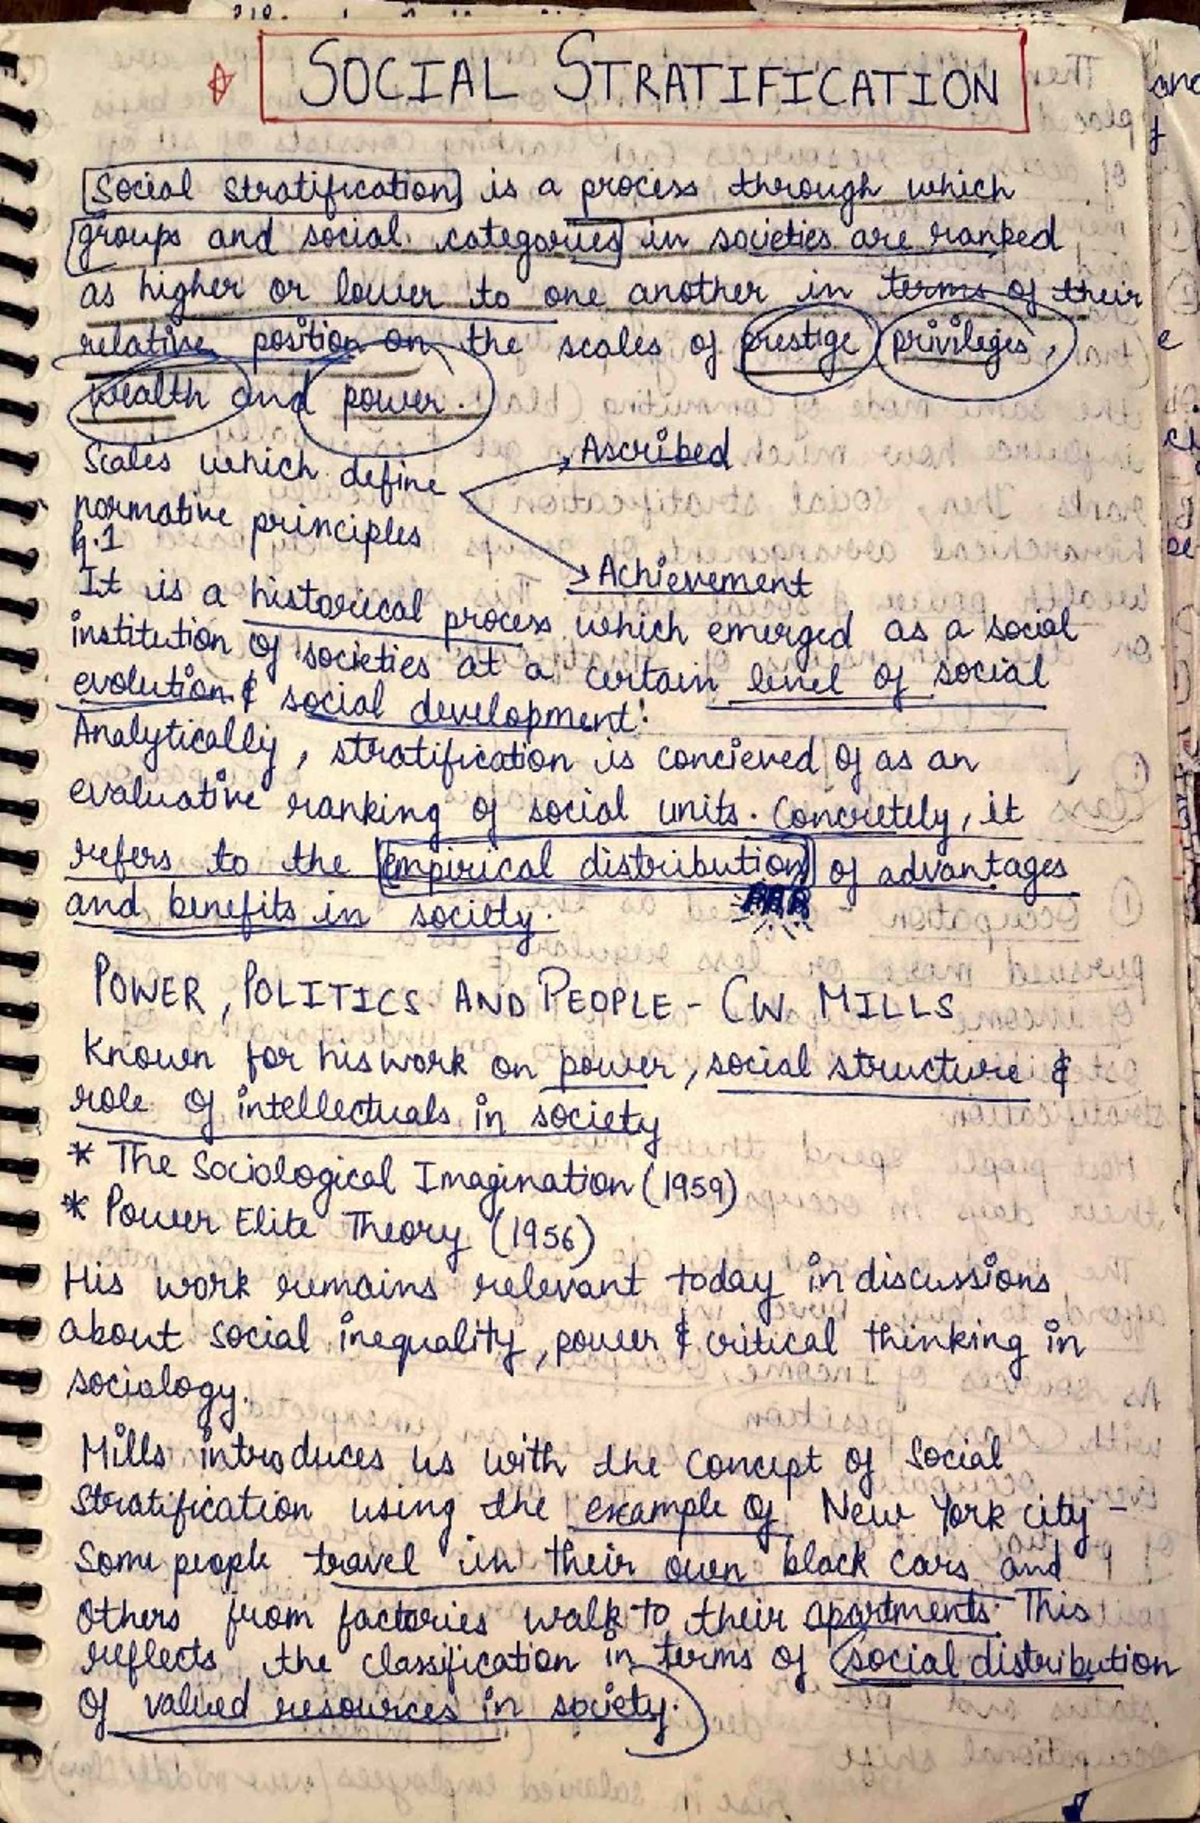 SOCIAL STRATIFICATION
Social stratification is a process through which
groups and social categories in societies are ranked
as higher or lower to one another in terms of their
relative position on the scales of prestige privileges,
wealth and power.
Scales which define
normative principles
Ascribed
Achievement
It is a historical process which emerged as a social
institution of societies at a certain level of social
evolution & social development.
Analytically, stratification is concieved of as an
evaluative ranking of social units. Concretely, it
refers to the empirical distribution of advantages
and benefits in society.
POWER, POLITICS AND PEOPLE - CW MILLS
Known for his work on power, social structure &
role of intellectuals in society
* The Sociological Imagination (1959)
* Power Elite Theory (1956)
His work remains relevant today in discussions
about social inequality, power & critical thinking in
sociology.
Mills introduces us with the concept of Social
Stratification using the example of New York city -
Some people travel in their own black cars and
others from factories walk to their apartments. This
reflects the classification in terms of social distribution
of valued resources in society.